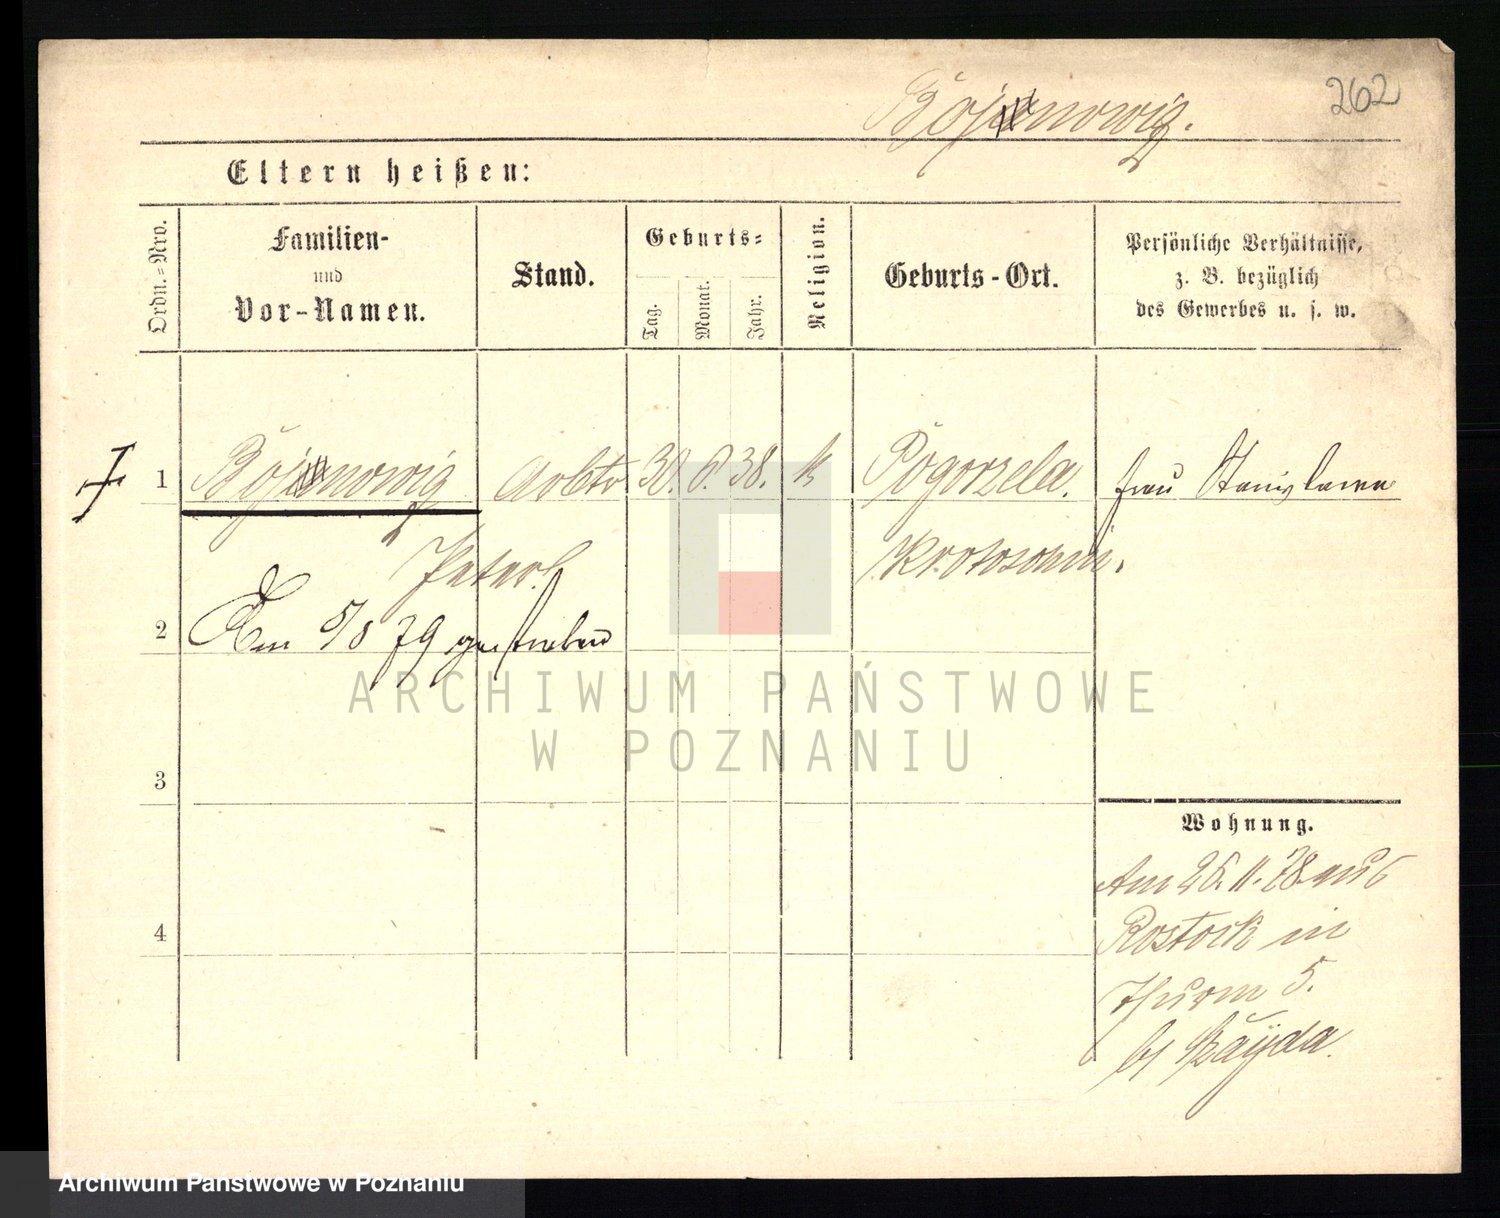 262
Bojanowig.
Eltern heißen:
Ordn.=Nro.
Familien-
und
Vor-Namen.
Stand.
Geburts=
Tag.
Monat.
Jahr.
Religion.
Geburts-Ort.
Persönliche Verhältnisse,
z. B. bezüglich
des Gewerbes u. s. w.
1
30. 6. 38. k Pogorzela. Frau Stanislawa
Krotoschin.
Peter
2 Am 5/8 79 gestorben
ARCHIWUM PAŃSTWOWE
W POZNANIU
3
Wohnung.
Am 26. 11. 78 aus
Rostock in
Thurm 5.
4
Archiwum Państwowe w Poznaniu